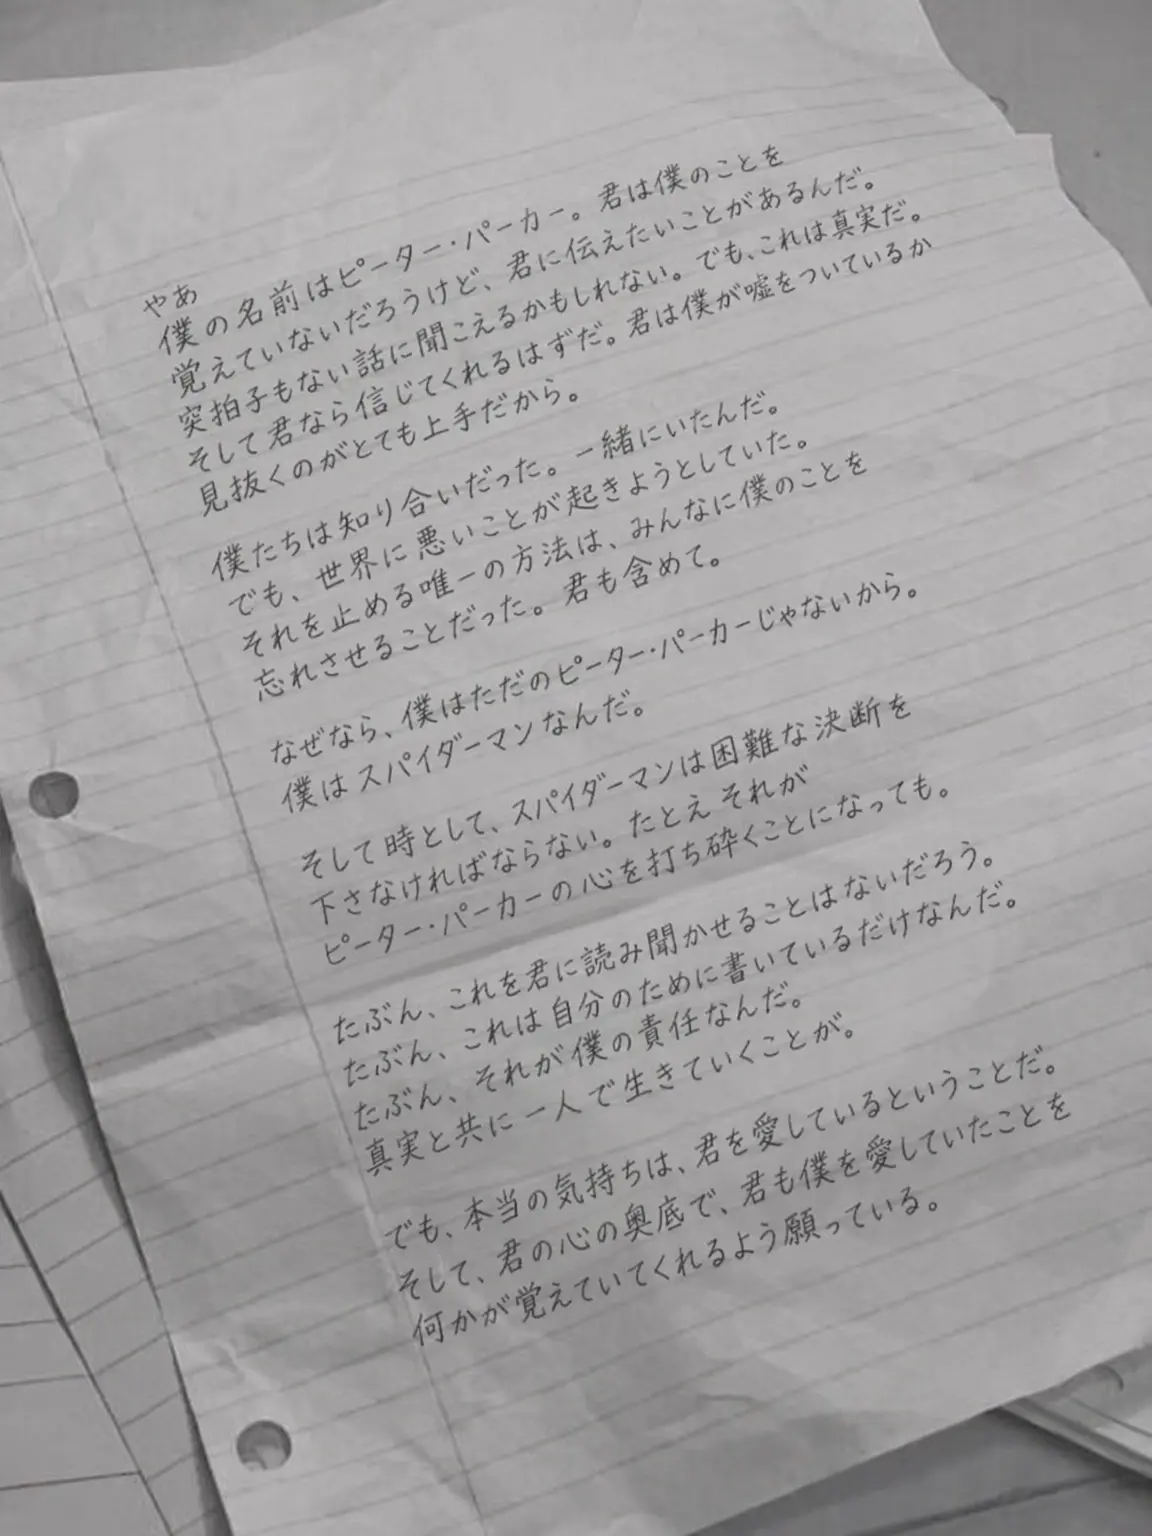 やあ
僕の名前はピーター・パーカー。君は僕のことを
覚えていないだろうけど、君に伝えたいことがあるんだ。
突拍子もない話に聞こえるかもしれない。でも、これは真実だ。
そして君なら信じてくれるはずだ。君は僕が嘘をついているか
見抜くのがとても上手だから。
僕たちは知り合いだった。一緒にいたんだ。
でも、世界に悪いことが起きようとしていた。
それを止める唯一の方法は、みんなに僕のことを
忘れさせることだった。君も含めて。
なぜなら、僕はただのピーター・パーカーじゃないから。
僕はスパイダーマンなんだ。
そして時として、スパイダーマンは困難な決断を
下さなければならない。たとえそれが
ピーター・パーカーの心を打ち砕くことになっても。
たぶん、これを君に読み聞かせることはないだろう。
たぶん、これは自分のために書いているだけなんだ。
たぶん、それが僕の責任なんだ。
真実と共に一人で生きていくことが。
でも、本当の気持ちは、君を愛しているということだ。
そして、君の心の奥底で、君も僕を愛していたことを
何かが覚えていてくれるよう願っている。